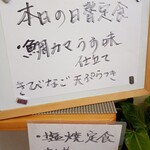 本日の日替定食
・鯛カマうす味
仕立て
きびなご天ぷらつき
・塩焼定食